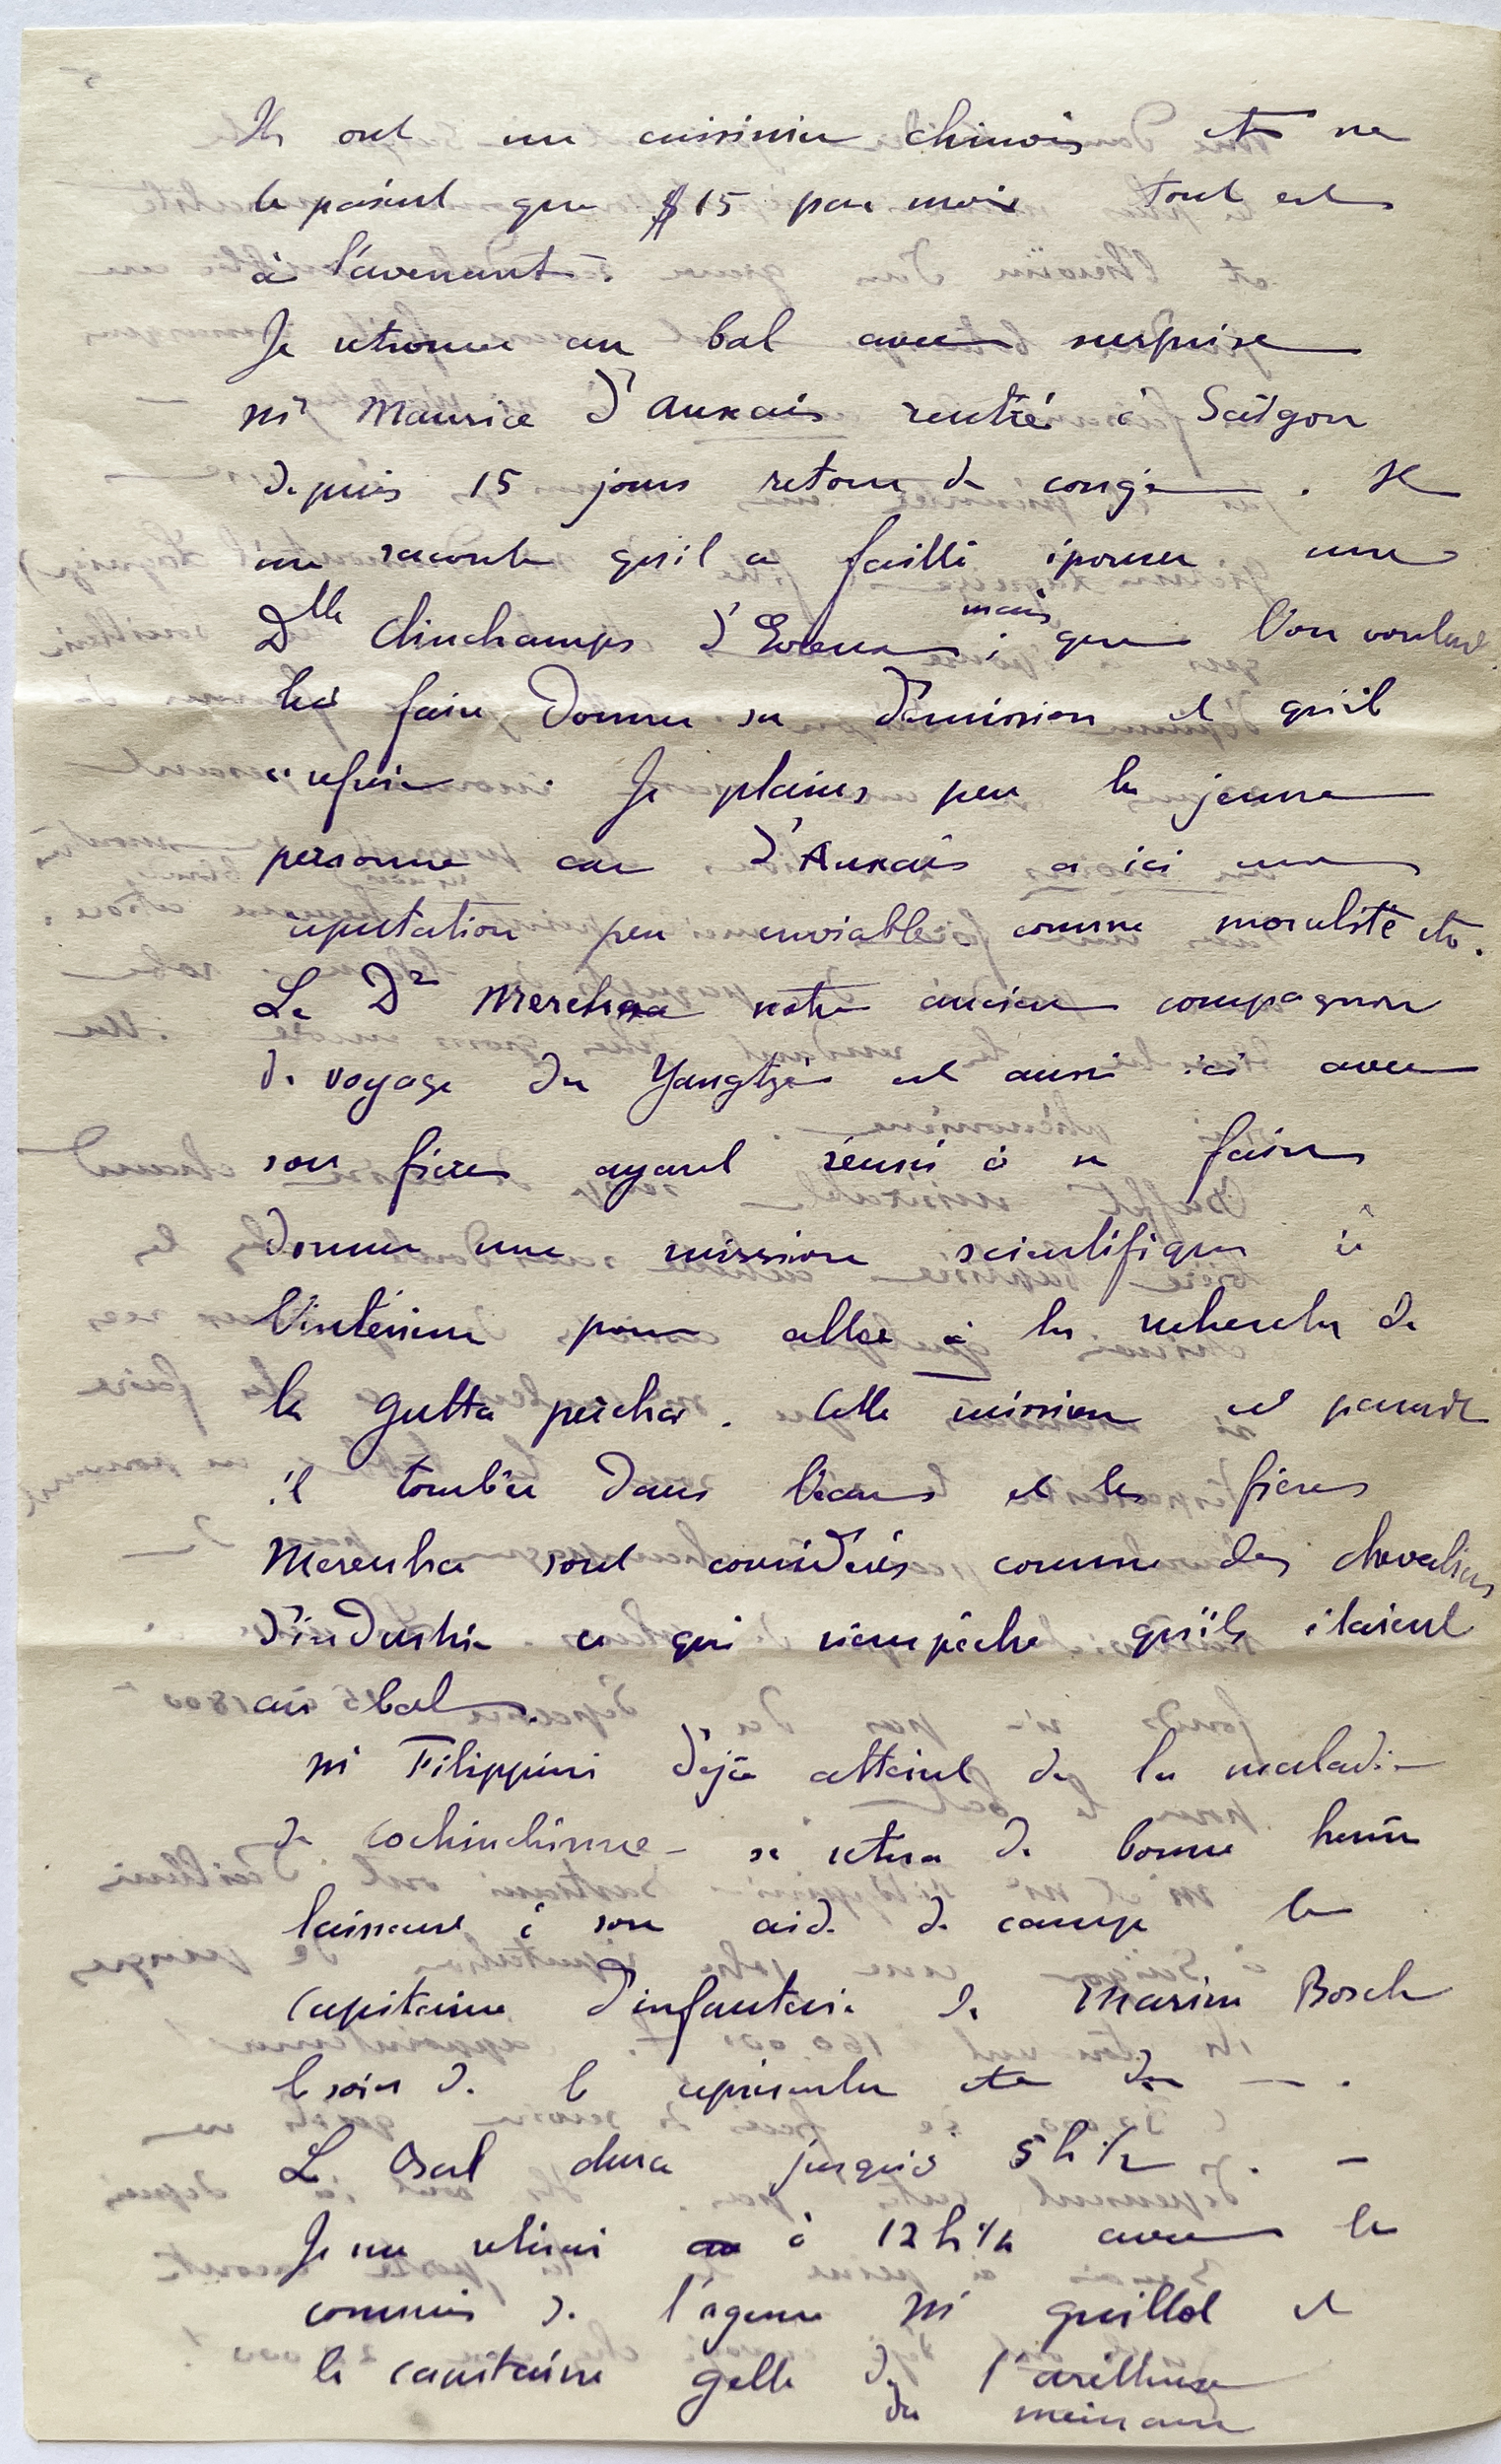 Ils ont un cuisinier chinois et ne
le paient que $15 par mois tout est
à l'avenant.
Je retrouve au bal avec surprise
Mr Maurice d'Auxais rentré à Saïgon
depuis 15 jours retour de congé. Il
me raconte qu'il a failli épouser une
Dlle Clinchamps d'Evreux; mais que l'on voulait
lui faire donner sa démission et qu'il
a refusé. Je plains peu la jeune
personne car d'Auxais a ici une
réputation peu enviable comme moralité etc.
Le Dr notre ancien compagnon
de voyage du Yangtzé est aussi ici avec
son frère ayant réussi à se faire
donner une mission scientifique à
l'intérieur pour aller à la recherche de
la gutta percha. Cette mission est parait
il tombée dans l'eau et les frères
sont considérés comme des chevaliers
d'industrie ce qui n'empêche qu'ils étaient
au bal.
Mr Filippini déjà atteint de la maladie
de cochinchine - se retira de bonne heure
laissant à son aide de camp le
capitaine d'infanterie de Marine Bosch
le soin de le représenter etc
Le Bal dura jusqu'à 5 h 1/2. -
Je me retirai à 12 h 1/2 avec le
commis de l'agence Mr Guillot et
le capitaine Gelle de l'aréthuse
du meinam